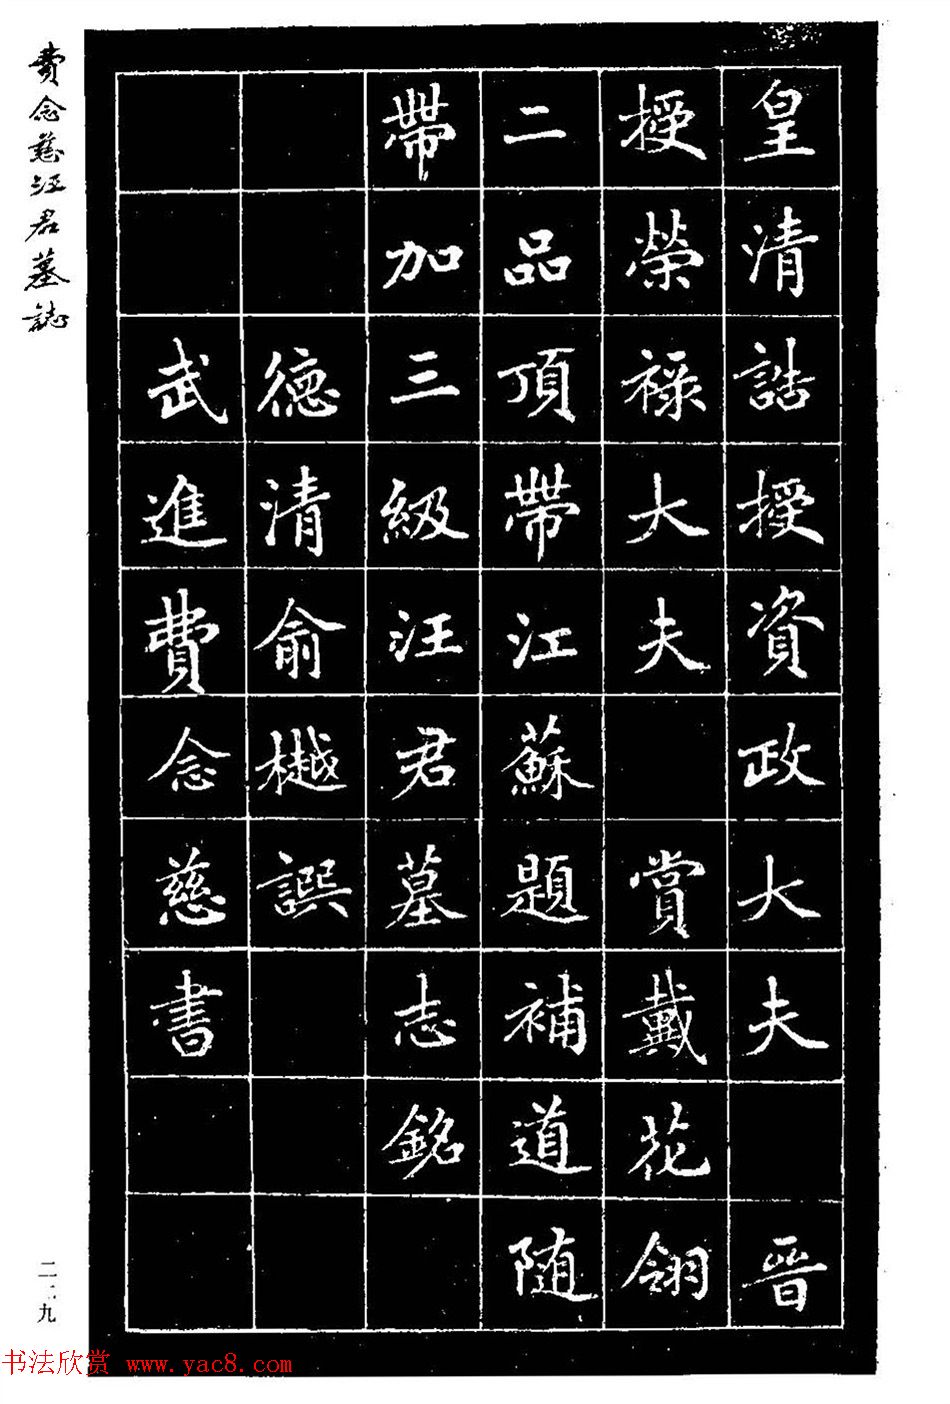 皇清誥授資政大夫 晉
授榮祿大夫 賞戴花翎
二品頂帶江蘇題補道隨
帶加三級汪君墓志銘
德清俞樾譔
武進費念慈書
費念慈汪君墓誌
二九
书法欣赏 www.yac8.com